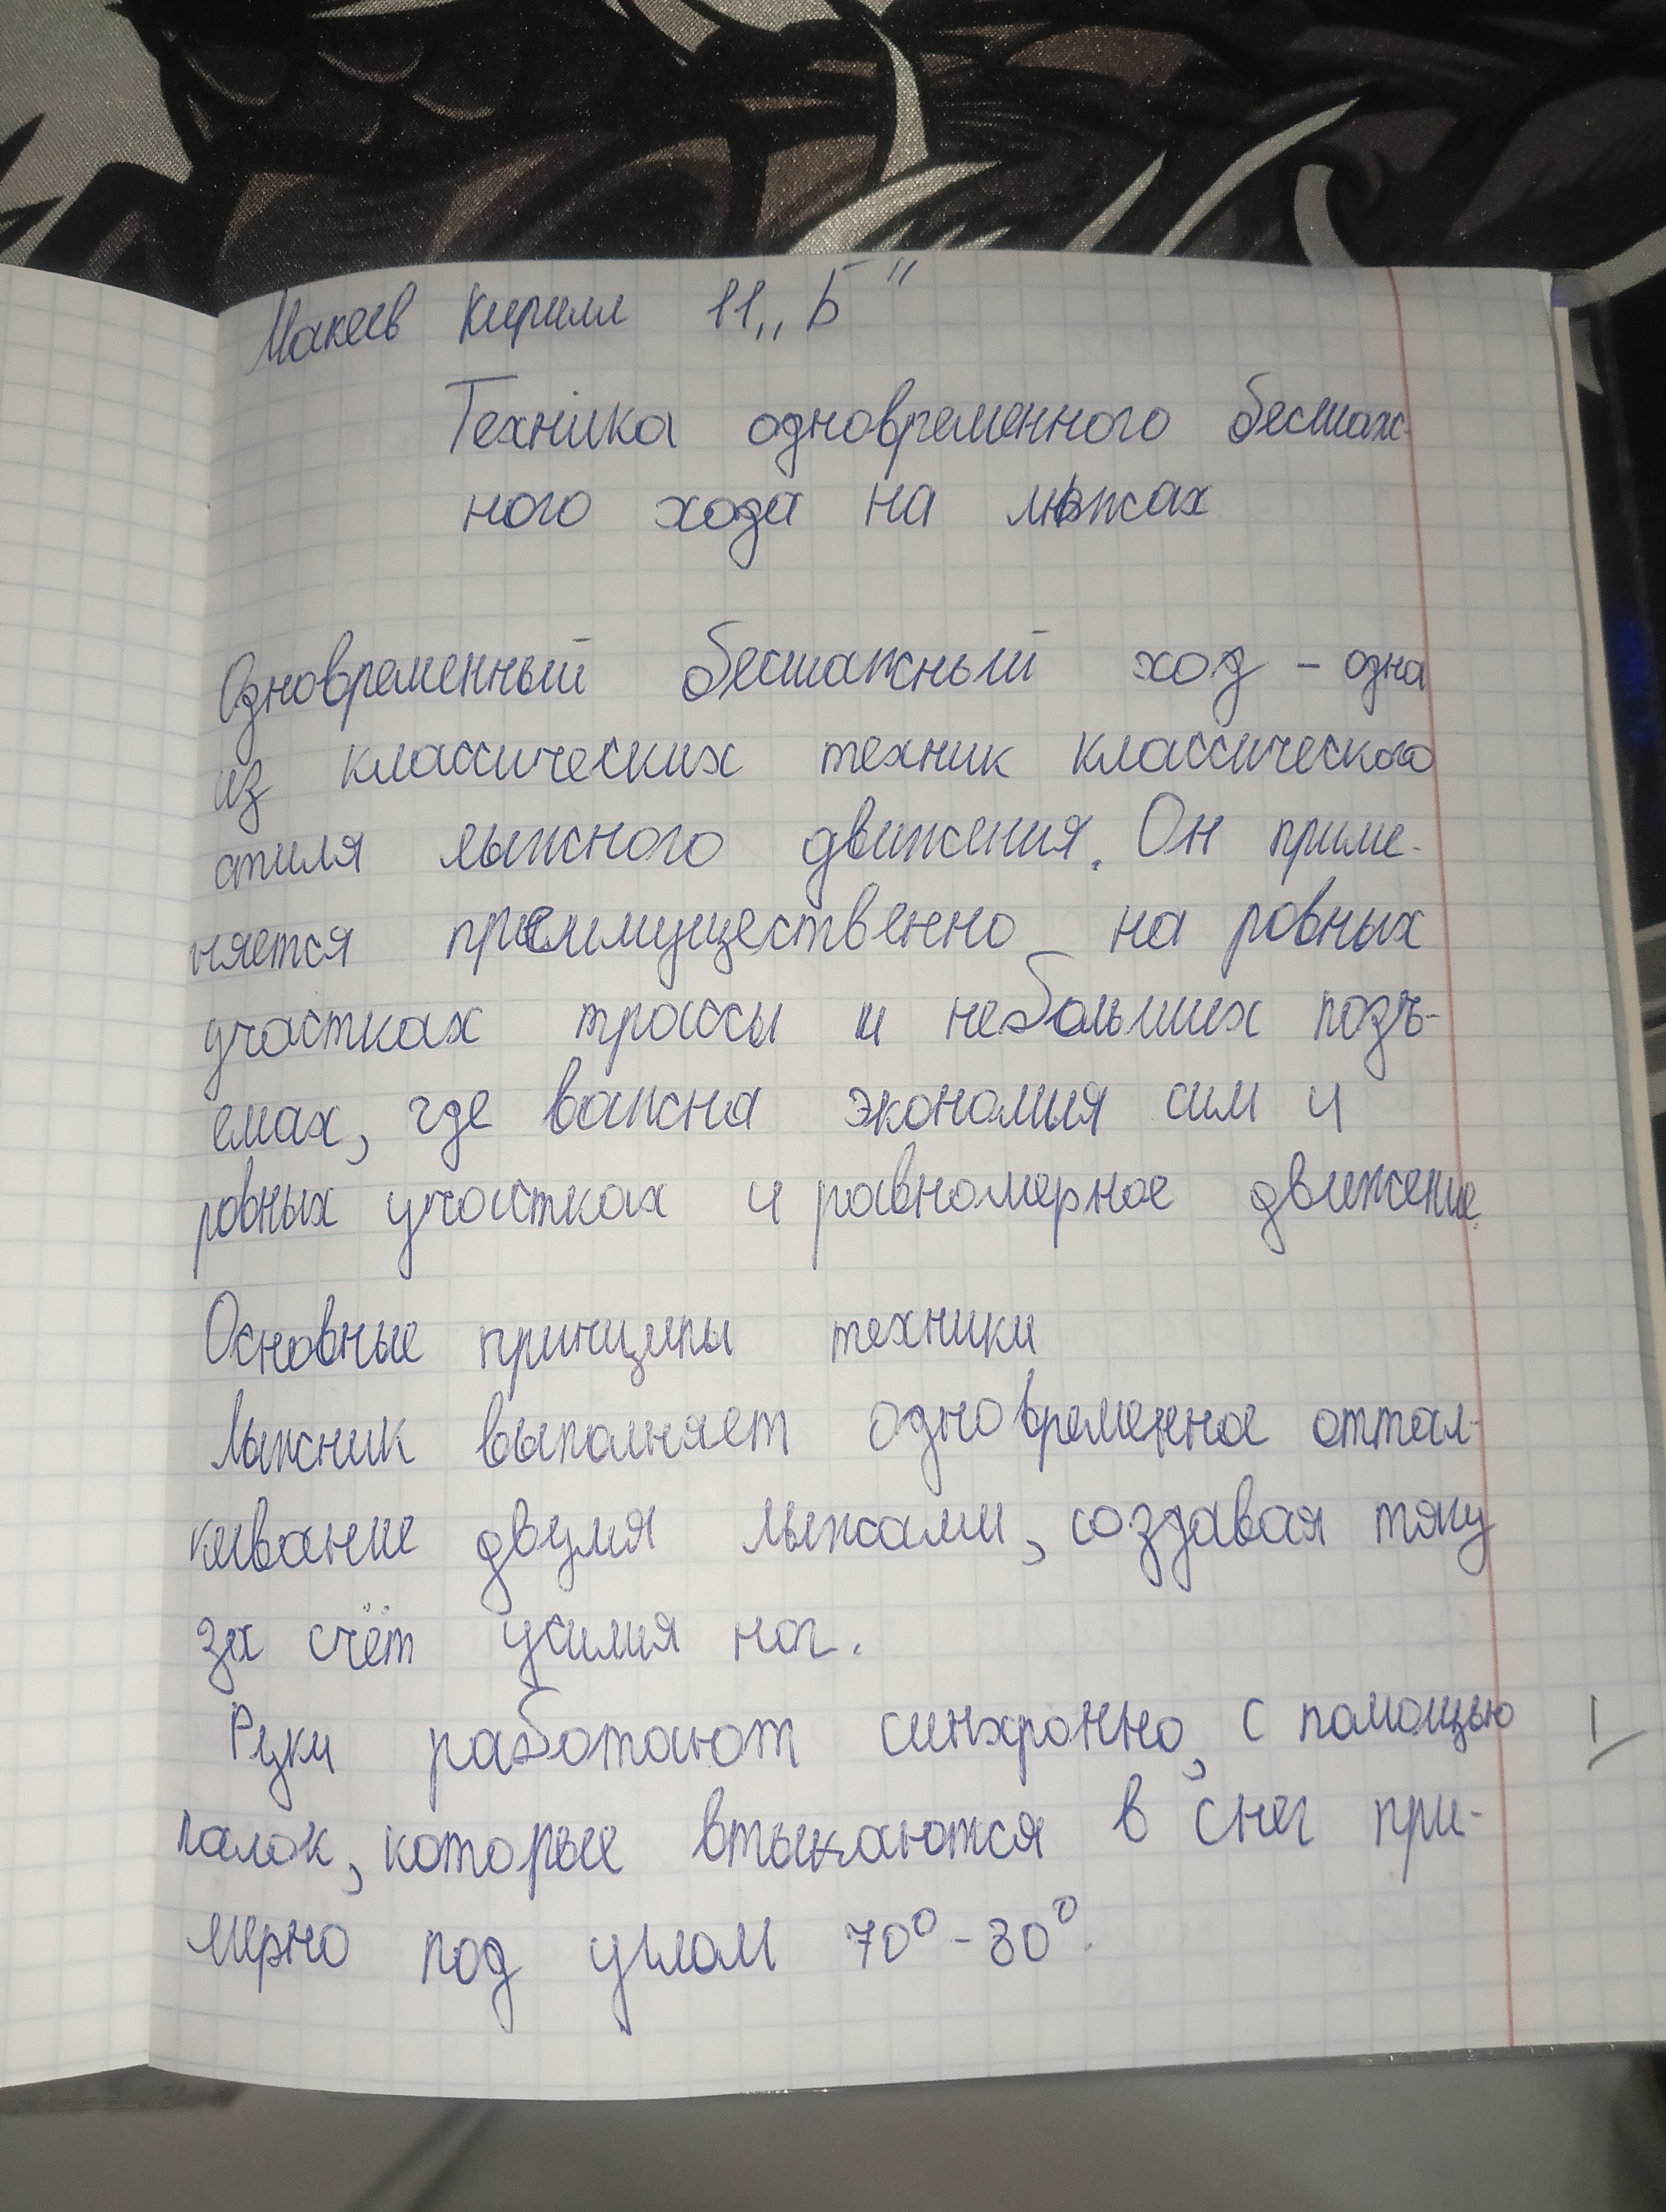 Макеев Кирилл 11 „Б"
Техника одновременного бесшаж-
ного хода на лыжах
Одновременный бесшажный ход - одна
из классических техник классического
стиля лыжного движения. Он приме-
няется преимущественно на ровных
участках трассы и небольших подъ-
емах, где важна экономия сил и
ровных участках и равномерное движение.
Основные принципы техники
Лыжник выполняет одновременное оттал-
кивание двумя лыжами, создавая тягу
за счёт усилия ног.
Руки работают синхронно, с помощью
палок, которые втыкаются в снег при-
мерно под углом 70°-80°.